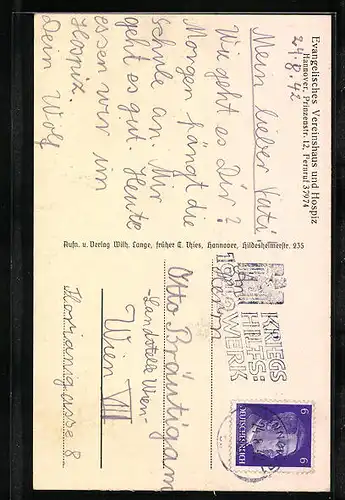 Evangelisches Vereinshaus und Hospiz
Hannover, Prinzenstr. 12, Fernruf 37974
24.8.42
Mein lieber Vati
Wie geht es Dir?
Morgen fängt die
Schule an. Mir
geht es gut. Heute
essen wir im
Hospiz.
Dein Wolf
Aufn. u. Verlag Wilh. Lange, früher C. Thies, Hannover, Hildesheimerstr. 235
KRIEGS
HILFS:
WERK
6
DEUTSCHES REICH
6
Herrn
Otto Bräutigam
-Landstelle Wien-
Wien VIII
Florianigasse 8